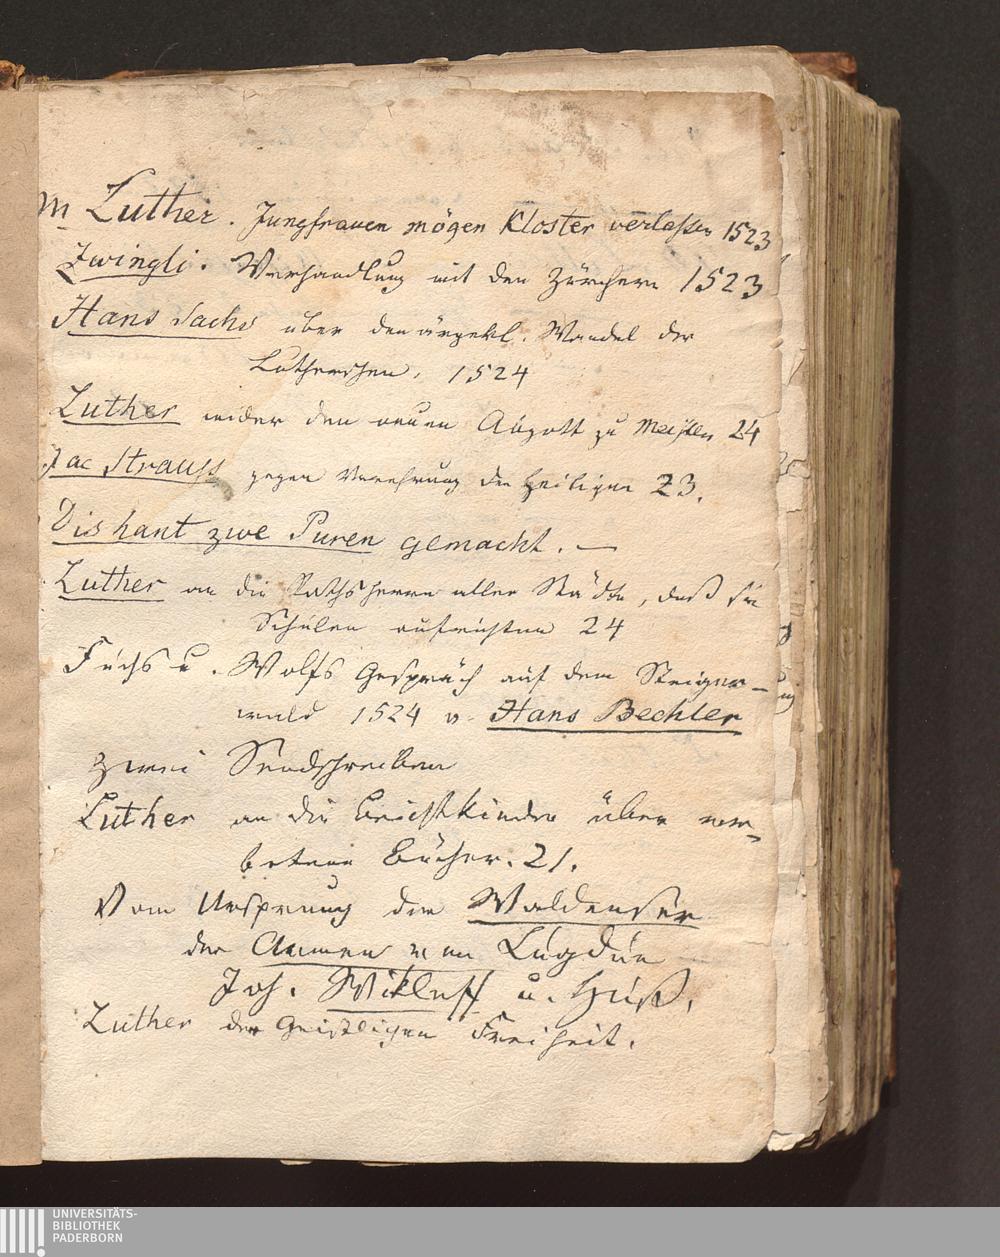 M Luther. Jungfrauen mögen Kloster verlassen 1523
Zwingli. Verhandlung mit den Zürchern 1523
Hans Sachs über den ärgerl. Wandel der
Lutherschen, 1524
Luther wider den neuen Abgott zu Meißen 24
Jac Strauss gegen Verehrung der Heiligen 23.
Dis hant zwe Puren gemacht. —
Luther an die Rathsherrn aller Städte, daß sie
Schulen aufrichten 24
Fuchs u. Wolfs Gespräch auf dem Steiger-
wald 1524 v. Hans Bechler
Zwei Sendschreiben
Luther an die Beichtkinder über ver-
botene Bücher. 21.
Vom Ursprung der Waldenser
der Armen von Lugdun
Joh. Wikleff u. Huß.
Luther der Geistlichen Freiheit.
UNIVERSITÄTS-
BIBLIOTHEK
PADERBORN